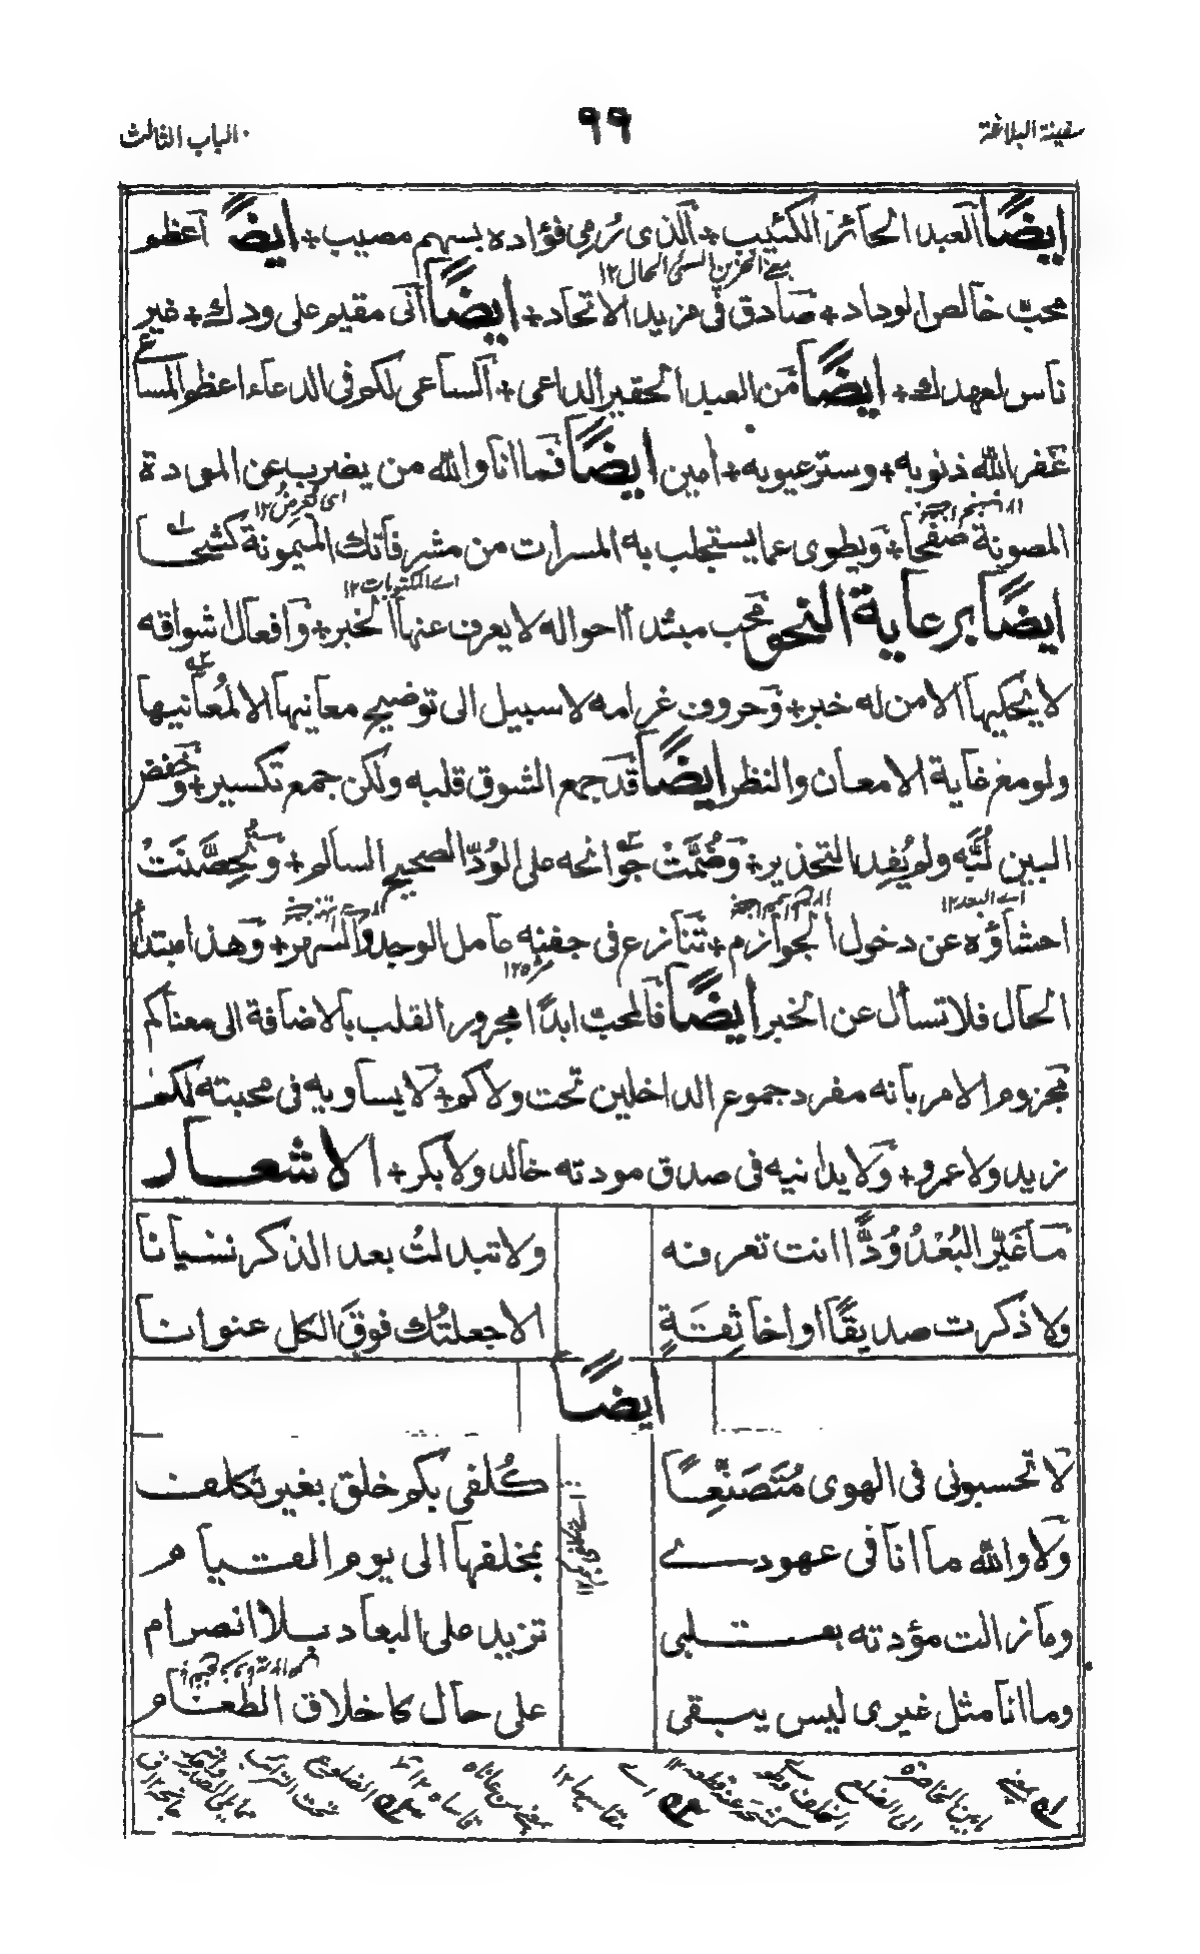 سفينة البلاغة
٩٩
الباب الثالث
ايضًا العبد الحائز الكئيب + الذى رُمِى فؤاده بسهم مصيب + ايضًا اعظم
محب خالص الوداد + صادق فى مزيد الاتحاد + ايضًا انى مقيم على ودك + غير
ناس لعهدك + ايضًا من العبد الحقير الداعى + الساعى لكم فى الدعاء اعظم المساعى
غفر الله ذنوبه + وستر عيوبه + امين ايضًا فما انا والله من يضرب عن المودة
المصونة صفحا + ويطوى عما يستجلب به المسرات من مشرفاتك الميمونة كشحا
اے المكتوبات ١٢
ايضًا برعاية النحو محب مبتدأ احواله لا يعرف عنها الخبر + وافعال اشواقه
لا يحكيها الا من له خبر + وحروف غرامه لا سبيل الى توضيح معانيها الا لمُعانيها
ولو مع غاية الامعان والنظر ايضًا قد جمع الشوق قلبه ولكن جمع تكسير + وخفض
البين لُبَّه ولم يُفِد التحذير + وضُمَّتْ جوانحه على الوُدّ الصحيح السالم + وحُصِّنَتْ
اے البعد ١٢
احشاؤه عن دخول الجوازم + تنازع فى جفنه عامل الوجد والسهر + وهذا مبتدأ
الحال فلا تسأل عن الخبر ايضًا فالمحب ابدًا مجرور القلب بالاضافة الى معناكم
مجزوم الامر بانه مفرد جموع الداخلين تحت ولاكم + لا يساويه فى محبته لكم
زيد ولا عمرو + ولا يدانيه فى صدق مودته خالد ولا بكر + الاشعار
ما غَيَّر البُعْدُ وُدًّا انت تعرفه ولا تبدلتُ بعد الذكر نسيانا
ولا ذكرت صديقًا او اخا ثِقَةٍ الا جعلتُك فوقَ الكل عنوانا
ايضًا
لا تحسبونى فى الهوى مُتَصَنِّعًا كُلفى بكم خلق بغير تكلف
ولا والله ما انا فى عهودے بمخلفها الى يوم القيام
وما زالت مؤدته بقلبى تزيد على البعاد بلا انصرام
وما انا مثل غيرى ليس يبقى على حال كاخلاق الطغام